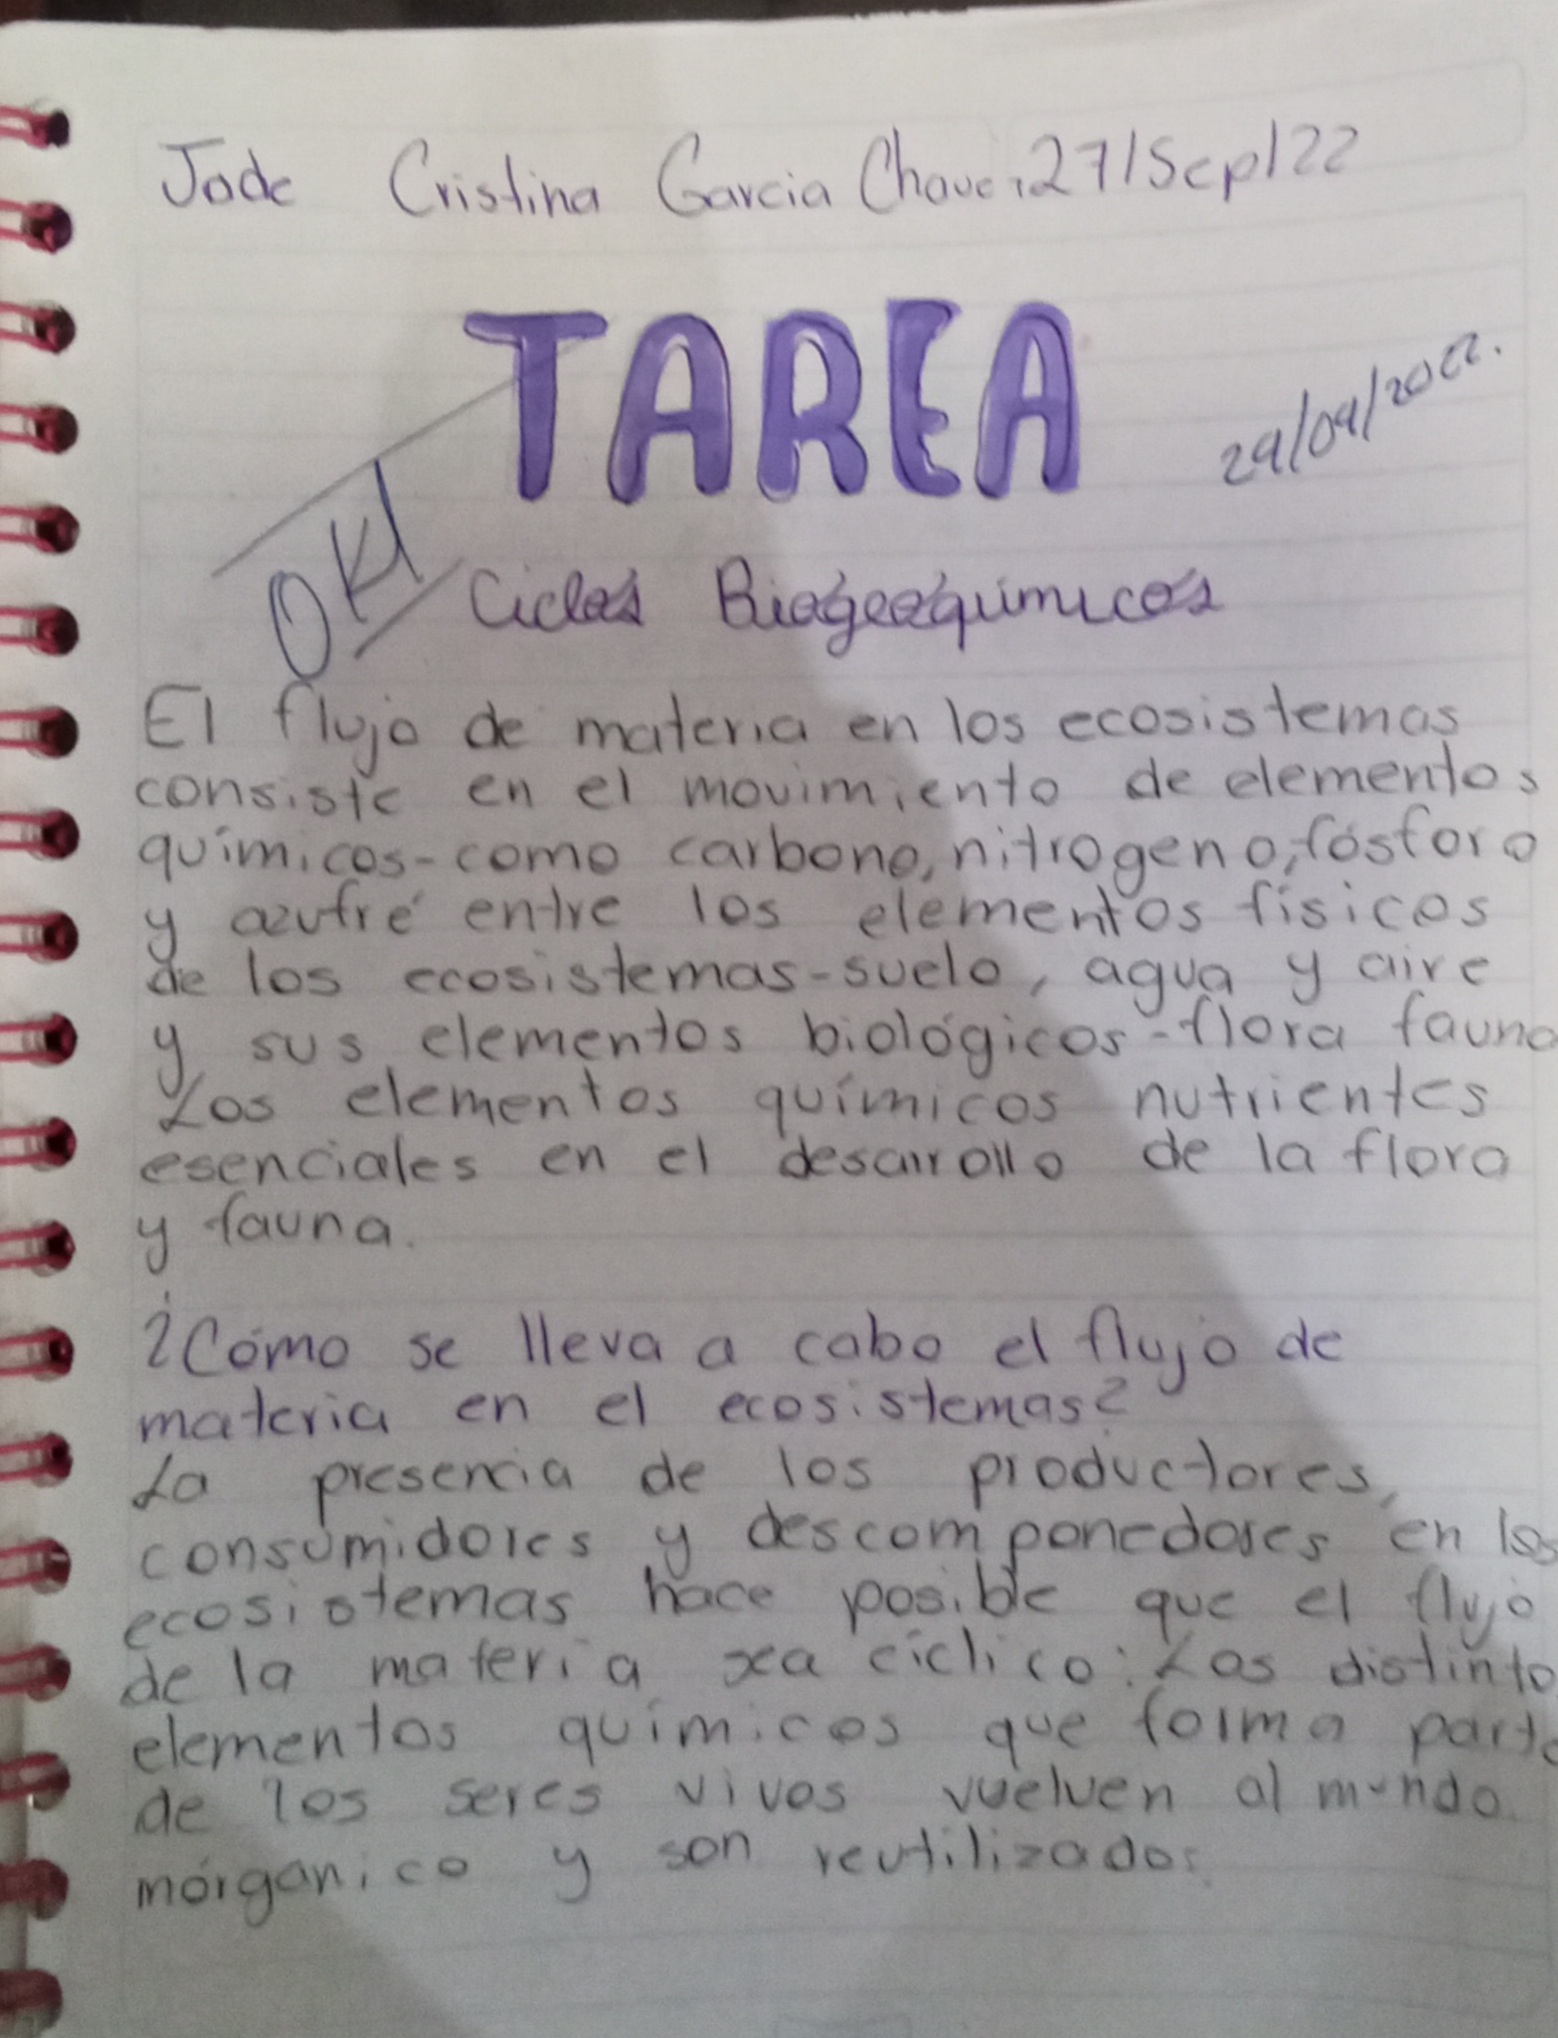 Jade Cristina Garcia Chave 27/Sep/22
TAREA
29/09/2022.
OK!
Ciclos Biogeoquimicos
El flujo de materia en los ecosistemas
consiste en el movimiento de elementos
químicos-como carbono, nitrogeno, fósforo
y azufre entre los elementos físicos
de los ecosistemas-suelo, agua y aire
y sus elementos biológicos-flora fauna
Los elementos químicos nutrientes
esenciales en el desarrollo de la flora
y fauna.
¿Cómo se lleva a cabo el flujo de
materia en el ecosistemas?
La presencia de los productores,
consumidores y descomponedores en los
ecosistemas hace posible que el flujo
de la materia sea cíclico: Los distinto
elementos químicos que forma parte
de los seres vivos vuelven al mundo
mórganico y son reutilizados.